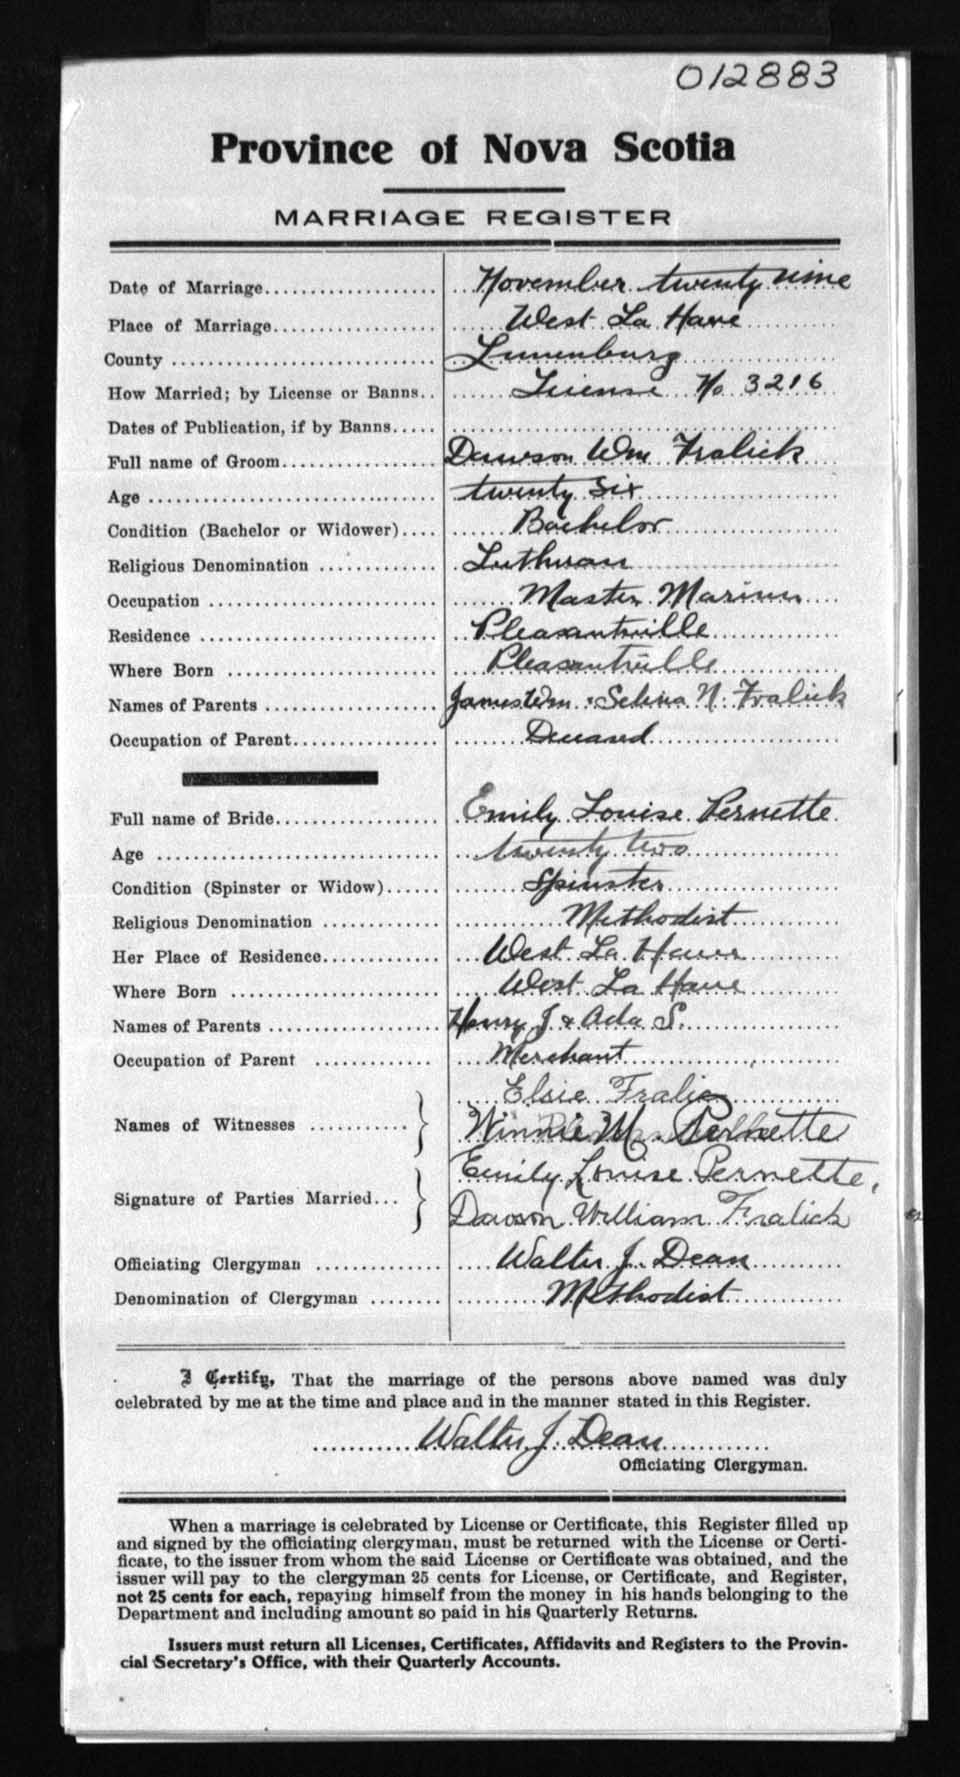 012883
Province of Nova Scotia
MARRIAGE REGISTER
Date of Marriage.................... November twenty nine
Place of Marriage................... West La Have
County .............................. Lunenburg
How Married; by License or Banns.. License No 3216
Dates of Publication, if by Banns.....
Full name of Groom.................. Dawson Wm Fralick
Age ................................. twenty six
Condition (Bachelor or Widower).... Bachelor
Religious Denomination ............. Lutheran
Occupation .......................... Master Mariner
Residence ........................... Pleasantville
Where Born .......................... Pleasantville
Names of Parents ................... James Wm : Selina N. Fralick
Occupation of Parent................ Deceased
Full name of Bride................... Emily Louise Pernette
Age ................................. twenty two
Condition (Spinster or Widow)...... Spinster
Religious Denomination ............. Methodist
Her Place of Residence.............. West La Have
Where Born ......................... West La Have
Names of Parents ................... Henry J & Ada S.
Occupation of Parent ............... Merchant
Names of Witnesses ........... Elsie Fralic
Winnie M. Pernette
Signature of Parties Married... Emily Louise Pernette.
Dawson William Fralick
Officiating Clergyman .............. Walter J. Dean
Denomination of Clergyman ........ Methodist
I Certify, That the marriage of the persons above named was duly
celebrated by me at the time and place and in the manner stated in this Register.
Walter J. Dean
Officiating Clergyman.
When a marriage is celebrated by License or Certificate, this Register filled up
and signed by the officiating clergyman, must be returned with the License or Certi-
ficate, to the issuer from whom the said License or Certificate was obtained, and the
issuer will pay to the clergyman 25 cents for License, or Certificate, and Register,
not 25 cents for each, repaying himself from the money in his hands belonging to the
Department and including amount so paid in his Quarterly Returns.
Issuers must return all Licenses, Certificates, Affidavits and Registers to the Provin-
cial Secretary's Office, with their Quarterly Accounts.